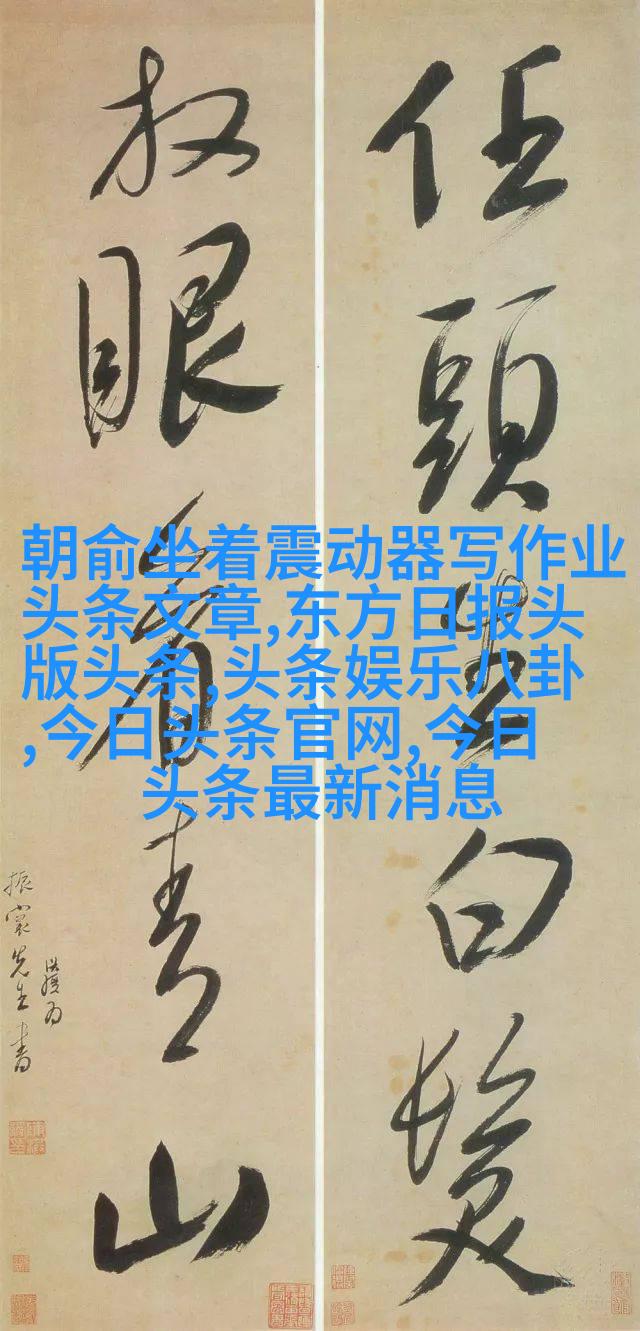 任頭生白髮
放眼看青山
振裳先生書
朝俞坐着震动器写作业
头条文章,东方日报头
版头条,头条娱乐八卦
,今日头条官网,今日
头条最新消息